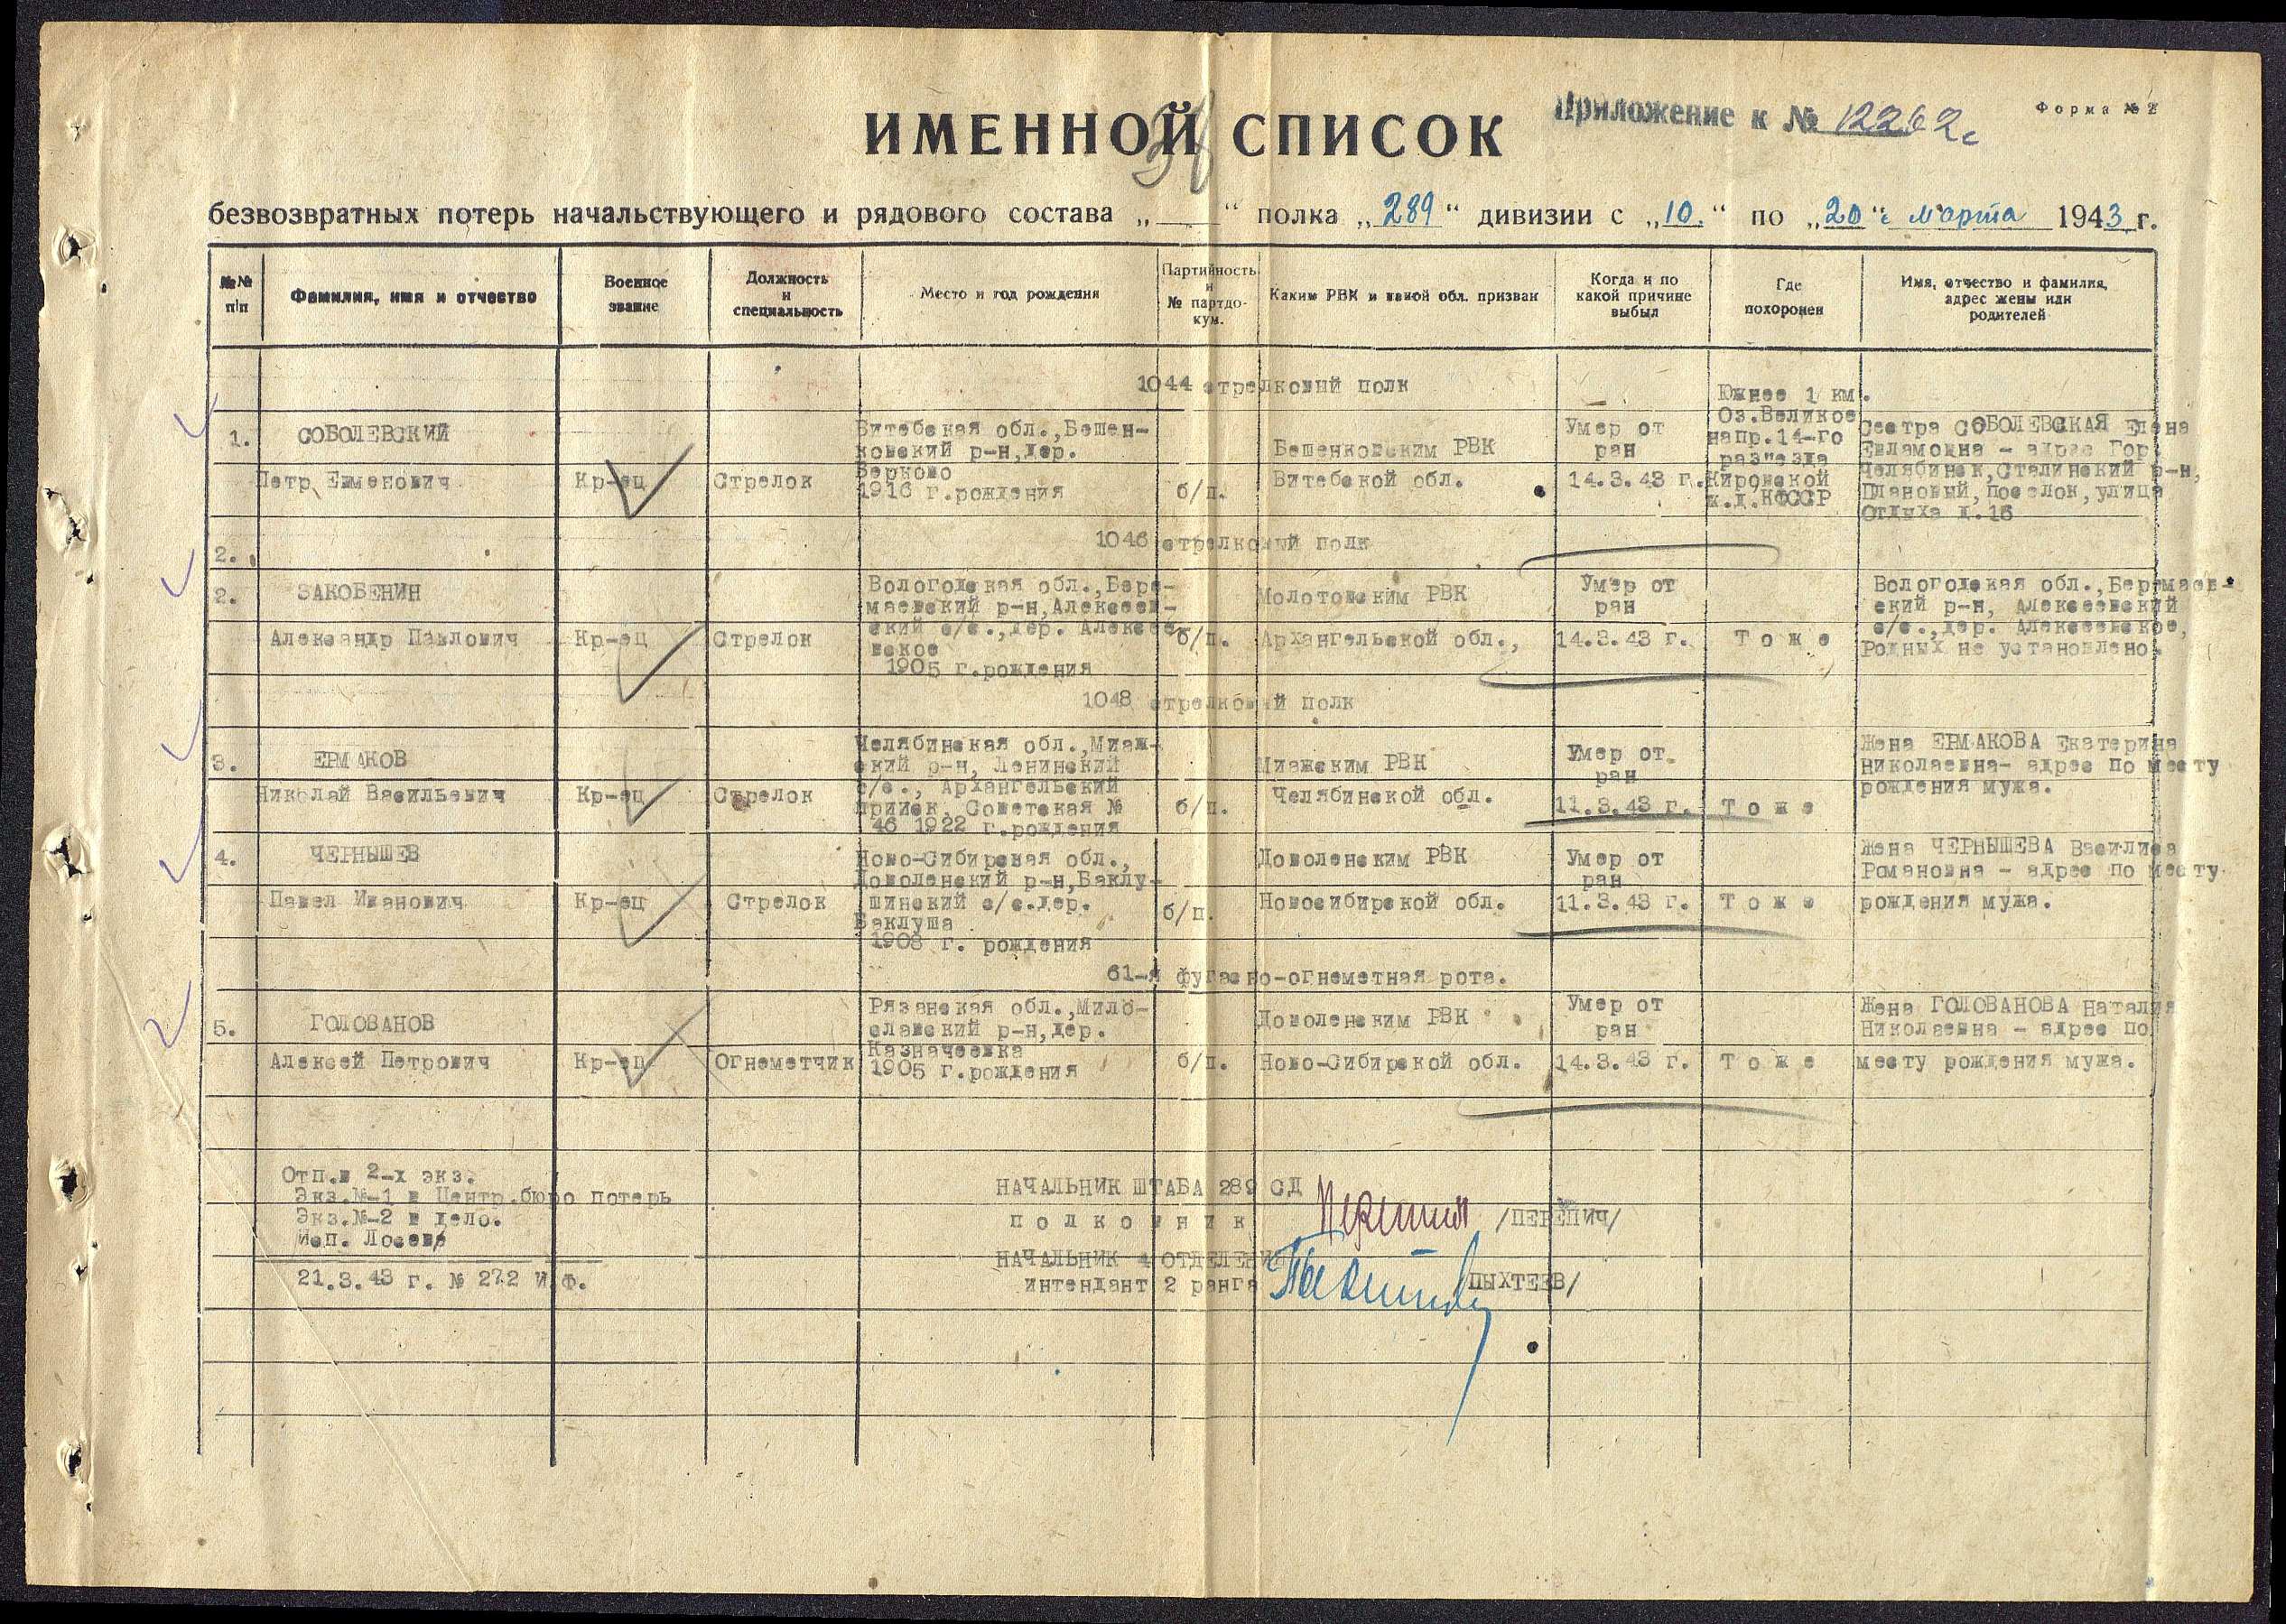 Приложение к № 12262с
Форма № 2
ИМЕННОЙ СПИСОК
безвозвратных потерь начальствующего и рядового состава „___“ полка „289“ дивизии с „10.“ по „20“ марта 1943 г.
№№ п/п
Фамилия, имя и отчество
Военное звание
Должность и специальность
Место и год рождения
Партийность и № партдокум.
Каким РВК и какой обл. призван
Когда и по какой причине выбыл
Где похоронен
Имя, отчество и фамилия, адрес жены или родителей
1044 стрелковый полк
1.
СОБОЛЕВСКИЙ
Петр Евменович
Кр-ец
Стрелок
Витебская обл., Бешен-
ковский р-н, дер.
Верково
1916 г.рождения
б/п.
Бешенковским РВК
Витебской обл.
Умер от
ран
14.3.43 г.
Южнее 1 км.
Оз.Великое
напр.14-го
раз"езда
Кировской
ж.д. КФССР
Сестра СОБОЛЕВСКАЯ Елена
Евламовна - адрес Гор.
Челябинск, Сталинский р-н,
Плановый, поселок, улица
Отдыха д.16
1046 стрелковый полк
2.
2.
ЗАКОБЕНИН
Александр Павлович
Кр-ец
Стрелок
Вологодская обл., Бера-
маевский р-н, Алексеев-
ский с/с., дер. Алексее
вское
1905 г.рождения
б/п.
Молотовским РВК
Архангельской обл.,
Умер от
ран
14.3.43 г.
Тоже
Вологодская обл., Бермаев-
ский р-н, Алексеевский
с/с., дер. Алексеевское,
Родных не установлено.
1048 стрелковый полк
3.
ЕРМАКОВ
Николай Васильевич
Кр-ец
Стрелок
Челябинская обл., Миаж-
ский р-н, Ленинский
с/с., Архангельский
прииск, Советская №
46 1922 г.рождения
б/п.
Миажским РВК
Челябинской обл.
Умер от
ран
11.3.43 г.
Тоже
Жена ЕРМАКОВА Екатерина
Николаевна- адрес по месту
рождения мужа.
4.
ЧЕРНЫШЕВ
Павел Иванович
Кр-ец
Стрелок
Ново-Сибирская обл.,
Доволенский р-н, Баклу-
шинский с/с.дер.
Баклуша
1908 г. рождения
б/п.
Доволенским РВК
Новосибирской обл.
Умер от
ран
11.3.43 г.
Тоже
Жена ЧЕРНЫШЕВА Василиса
Романовна - адрес по месту
рождения мужа.
61-я фугасно-огнеметная рота.
5.
ГОЛОВАНОВ
Алексей Петрович
Кр-ец
Огнеметчик
Рязанская обл., Мило-
славский р-н, дер.
Казначеевка
1905 г.рождения
б/п.
Доволенским РВК
Ново-Сибирской обл.
Умер от
ран
14.3.43 г.
Тоже
Жена ГОЛОВАНОВА Наталия
Николаевна - адрес по
месту рождения мужа.
Отп.в 2-х экз.
Экз.№-1 в Центр.бюро потерь
Экз.№-2 в дело.
Исп. Лосева
21.3.43 г. № 272 И.Ф.
НАЧАЛЬНИК ШТАБА 289 СД
полковник /ПЕРЕПИЧ/
НАЧАЛЬНИК 4 ОТДЕЛЕНИЯ
интендант 2 ранга ПЫХТЕЕВ/